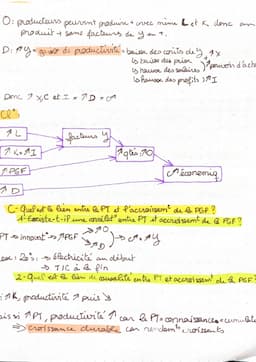 O: producteurs peuvent produire + avec même L et K donc on
produit + same facteurs de y = 1.
D: ↗ y = gains de productivité = baisse des coûts de y ↗ x
↳ baisse des prix
↳ hausse des salaires } ↗ pouvoir d'achat
↳ hausse des profits ↗ I
Donc ↗ x, C et I = ↗ D = c↗
Cl°:
↗ L
↗ K = ↗ I
facteurs y
↗ qtés ↗ O
↗ PGF
c↗ économiq
↗ D
C- Quel est le lien entre le PT et l'accroissemt de la PGF?
1- Existe-t-il une corrélat° entre PT et accroissemt de la PGF?
PT → innovat° → ↗ PGF ↗ O ↘ D → c↗ = ↗ y
20e s: → électricité au début
→ TIC à la fin
2- Quel est le lien de causalité entre PT et accroissemt de la PGF?
↗ K, productivité ↗ puis ↘
si ↗ PT, productivité ↗ car le PT = connaissances = cumulab
⇒ Croissance durable car rendemts croissants